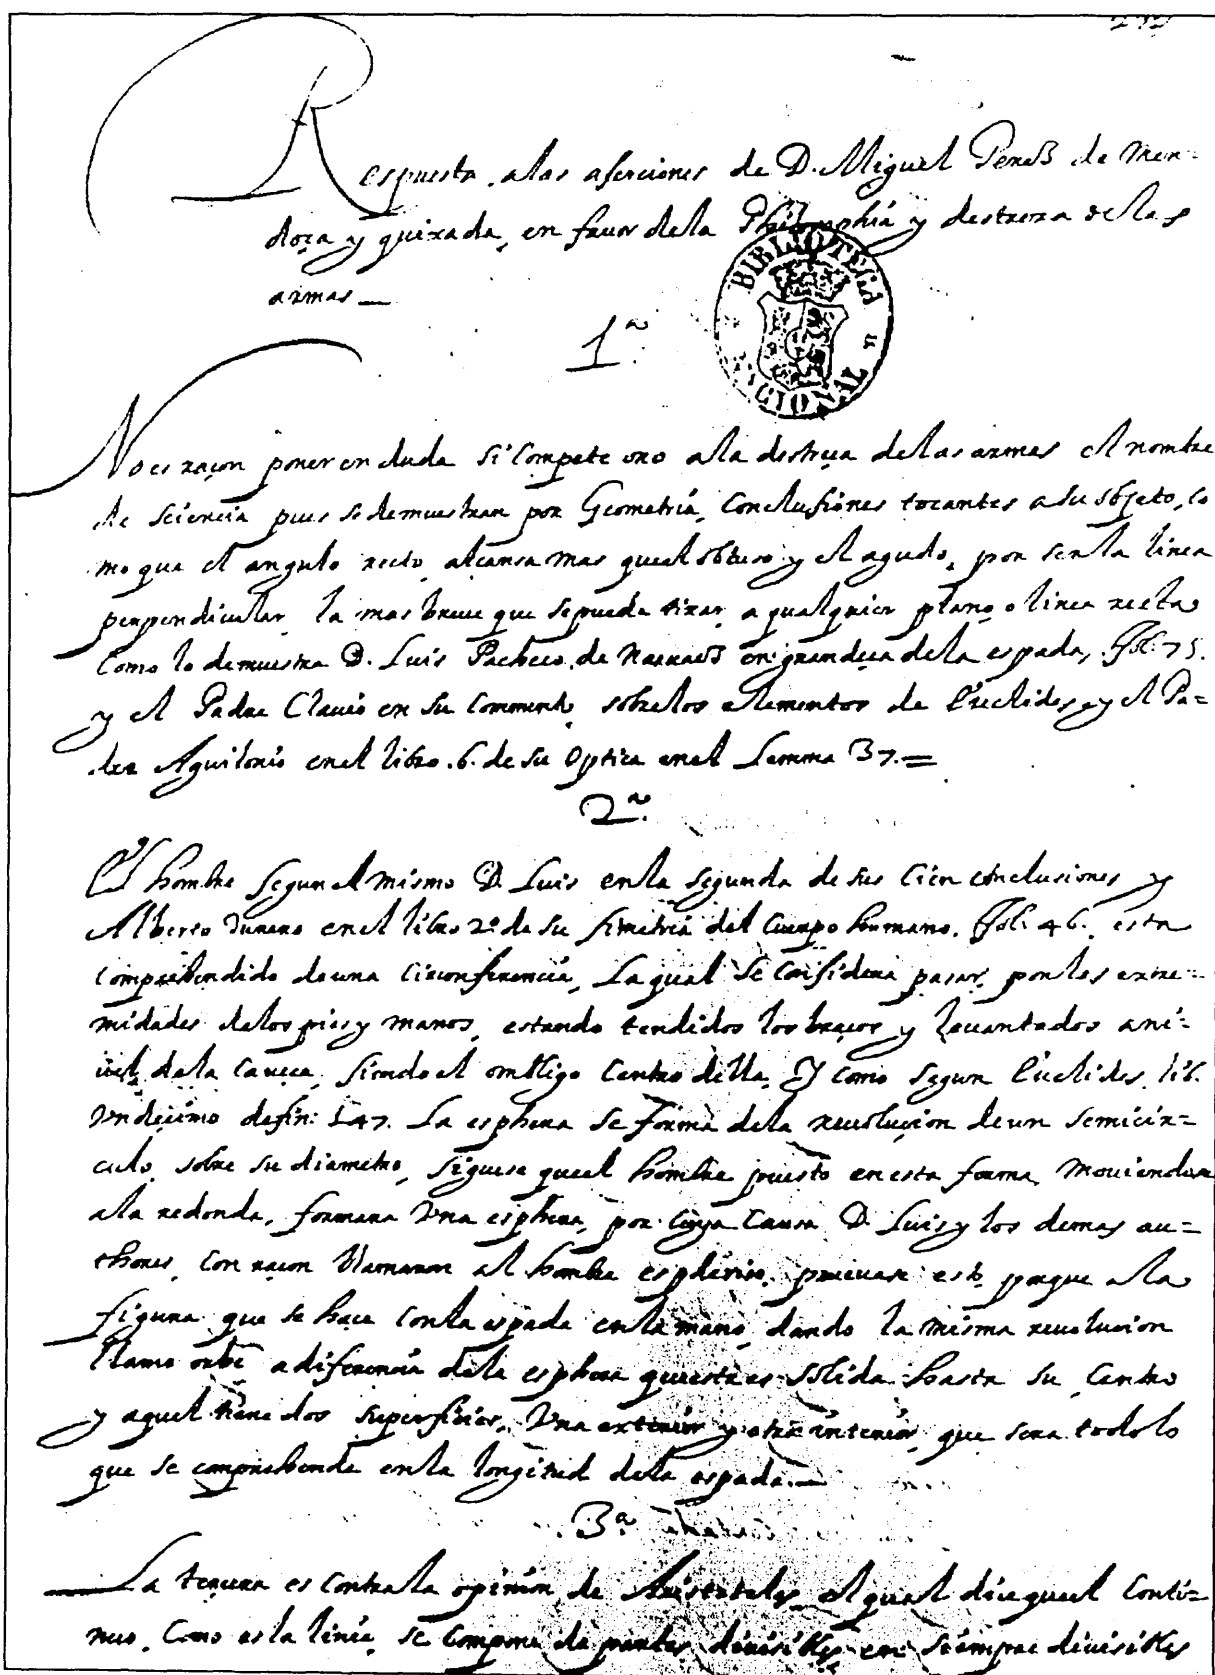 Respuesta, a las aserciones de D. Miguel Perez de Men=
doza y quixada, en fauor de la Philosophia y destreza de las
armas —
BIBLIOTECA NACIONAL
1ª
No es raçon poner en duda si Compete o no a la destreça de las armas el nombre
de sciencia pues se demuestran por Geometria, Conclusiones tocantes a su objeto, co
mo que el angulo recto, alcansa mas que el obtuso y el agudo, por ser la linea
perpendicular, la mas breue que se pueda tirar, a qualquier plano o linea recta
Como lo demuestra D. Luis Pacheco, de Naruaez en grandeça de la espada, fol. 75.
y el Padre Clauio en su Comment, sobre los elementos de Euclides, y el Pa=
dre Aguilonio en el libro .6. de su Optica en el Lemma 37.=
2ª
El hombre segun el mismo D. Luis en la segunda de sus Cien conclusiones y
Alberto Durero en el libro 2º de su simetria del Cuerpo humano, fol. 46. esta
Comprehendido de una Circonferencia, La qual se Considera pasar, por los extre=
midades de los pies y manos, estando tendidos los braços y leuantados a ni=
uel de la Caueça, siendo el ombligo Centro della, y Como segun Euclides, lib.
Vndecimo defin: 147. La esphera se forma de la reuoluçion de un semicir=
culo, sobre su diametro, siguese que el hombre puesto en esta forma, mouiendose
a la redonda, formara Vna esphera, por Cuya Causa D. Luis y los demas au=
thores, con raçon llamaron al hombre espherico, prueuase esto, porque a la
figura que se haçe con la espada en la mano, dando la misma reuolucion
llamo orbe a diferencia de la esphera que esta es solida hasta su Centro
y aquel tiene dos superficies, Vna exterior y otra interior, que sera todo lo
que se comprehende en la longitud de la espada.—
3ª
La tercera es Contra la opinion, de Aristoteles, el qual diçe que el Conti=
nuo, Como es la linea, se Compone de partes diuisibles en siempre diuisibles